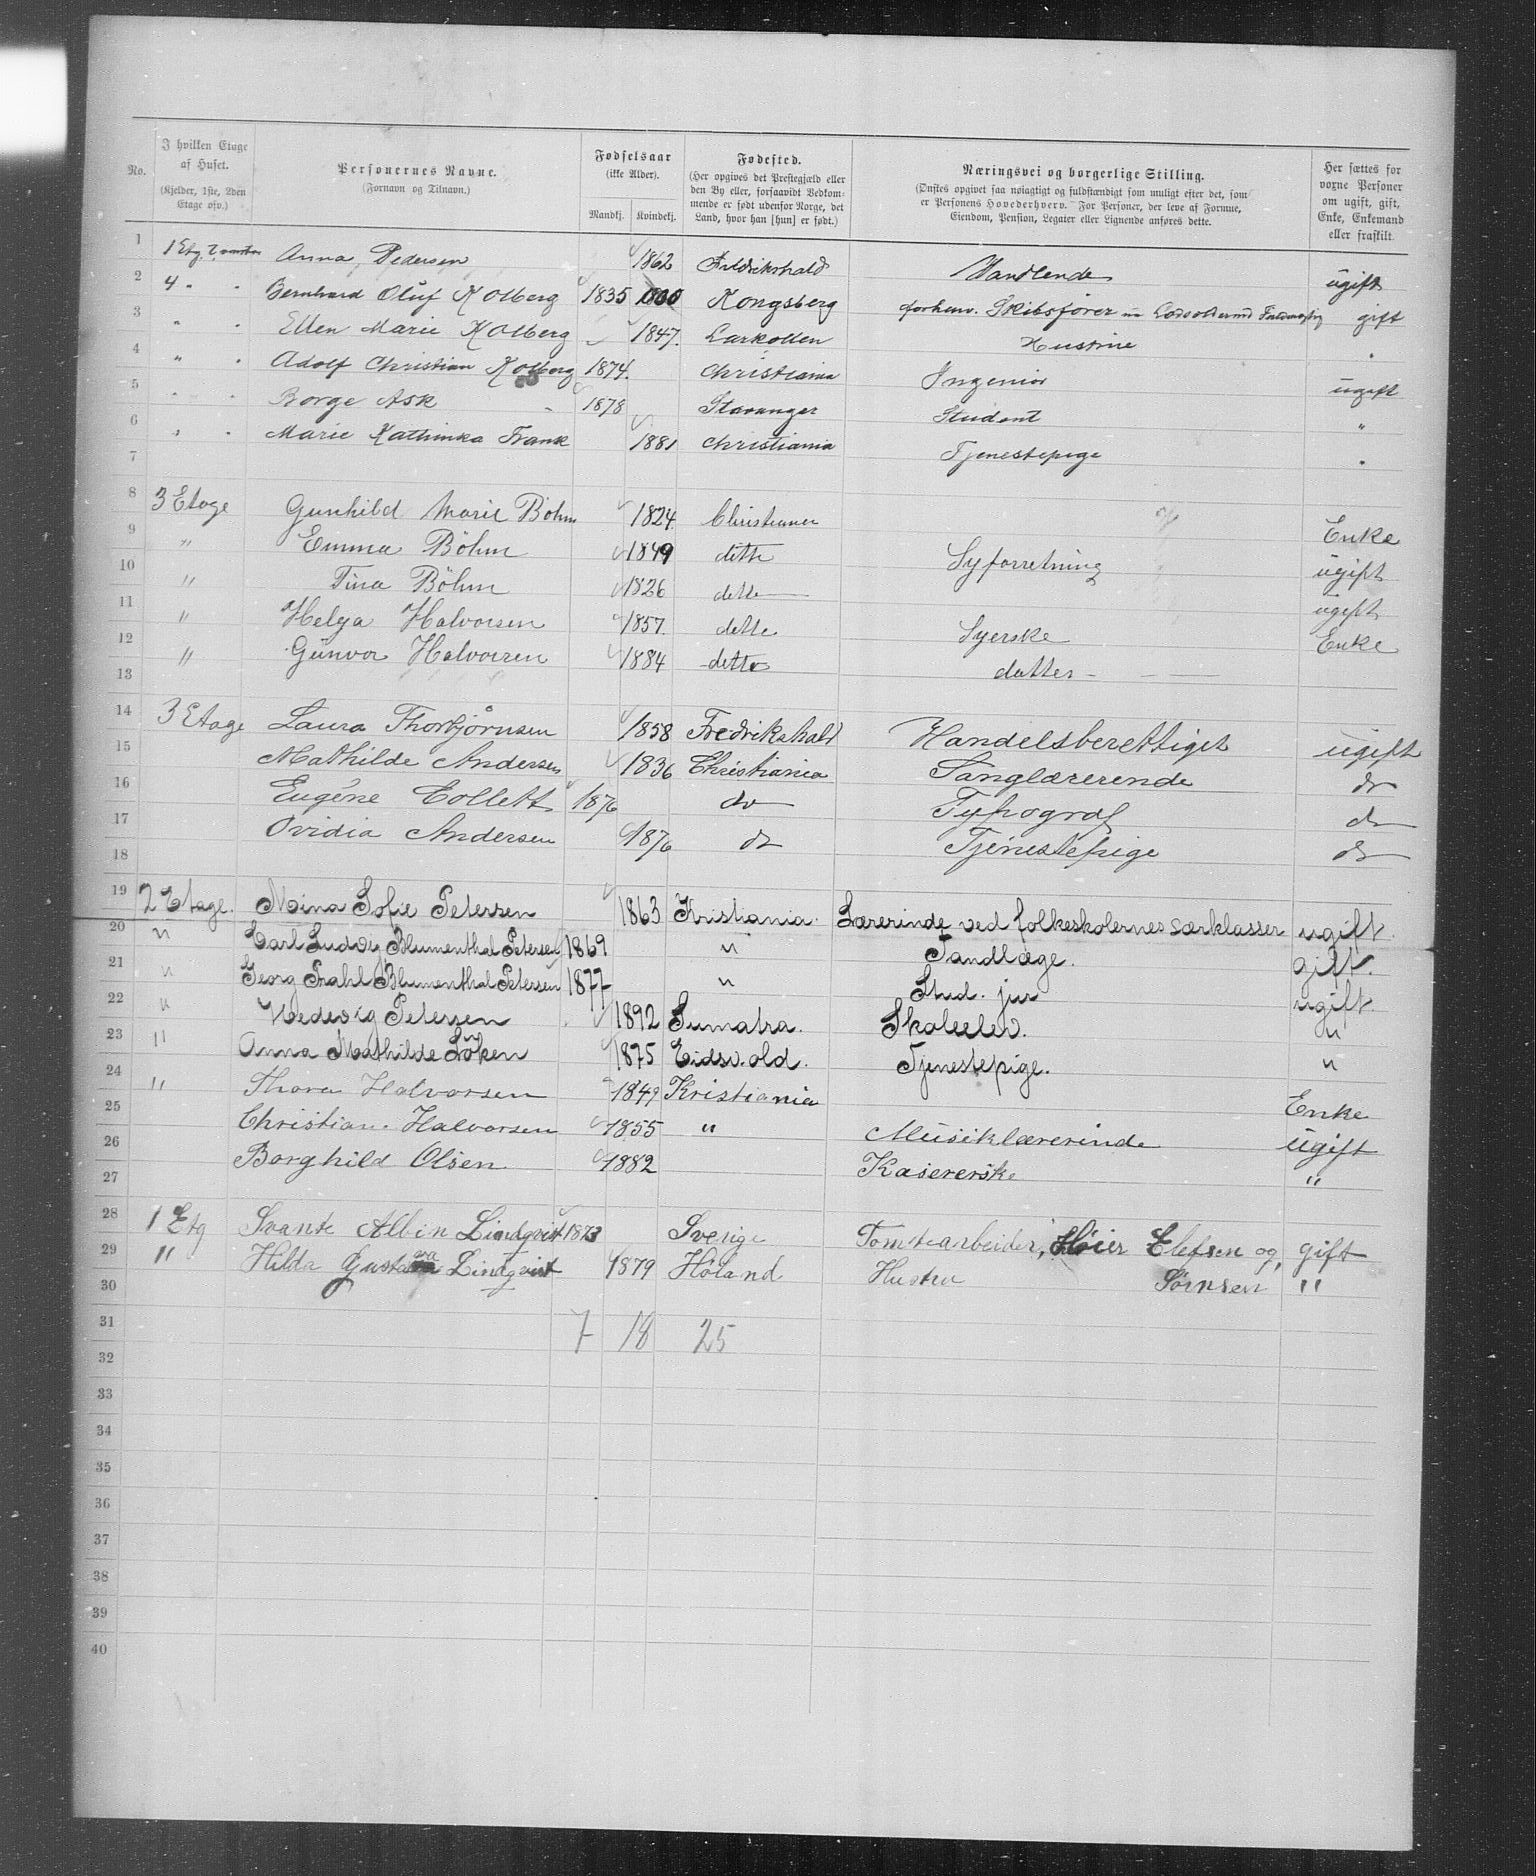 No. | I hvilken Etage af Huset. (Kjelder, 1ste, 2den Etage osv.) | Personernes Navne. (Fornavn og Tilnavn.) | Fødselsaar (ikke Alder). Mandkj. Kvindekj. | Fødested. (Her opgives det Prestegjæld eller den By eller, forsaavidt Vedkommende er født udenfor Norge, det Land, hvor han [hun] er født.) | Næringsvei og borgerlige Stilling. (Ønskes opgivet saa nøiagtigt og fuldstændigt som muligt efter det, som er Personens Hovederhverv. For Personer, der leve af Formue, Eiendom, Pension, Legater eller Lignende anføres dette. | Her sættes for voxne Personer om ugift, gift, Enke, Enkemand eller fraskilt.
1 1 Etg. Anna Pedersen 1862 Fredrikshald Handlende ugift
2 4 " " Bernhard Oluf Kolberg 1835 Kongsberg forhenv. Skibsfører gift
3 " " Ellen Marie Kolberg 1847. Larkollen Hustrue "
4 " " Adolf Christian Kolberg 1874. Christiania Ingeniør ugift
5 " " Borge Ask 1878 Stavanger Student "
6 " " Marie Kathinka Frank 1881 Christiania Tjenestepige "
7
8 3 Etage Gunhild Marie Böhm 1824 Christiania Enke
9 " Emma Böhm 1849 dette Syforretning ugift
10 " Tina Böhm 1826 dette ugift
11 " Helga Halvorsen 1857. dette Syerske Enke
12 " Günvor Halvorsen 1884 dette datter
13
14 3 Etage Laura Thorbjørnsen 1858 Fredrikshald Handelsberettiget ugift
15 Mathilde Andersen 1836 Christiania Sanglærerende do
16 Eugéne Collett 1876 do Typograf do
17 Ovidia Andersen 1876 do Tjenestepige do
18
19 2 Etage. Mina Sofie Petersen 1863 Kristiania. Lærerinde ved folkeskolernes særklasser ugift.
20 " Carl Ludvig Blumenthal Petersen 1869 " Tandlæge. gift.
21 " Georg Prahl Blumenthal Petersen 1877 " Stud. jur ugift.
22 " Hedevig Petersen 1892 Sumatra. Skoleelev. "
23 " Anna Mathilde Løken 1875 Eidsvold. Tjenestepige. "
24 " Thora Halvorsen 1849 Kristiania Enke
25 Christiane Halvorsen 1855 " Musiklærerinde ugift
26 Borghild Olsen 1882 Kasererske "
27
28 1 Etg Svante Albin Lindqvist 1873 Sverige Tomtearbeider, Høier Elefsen og, gift
29 " Hilda Gustava Lindqvist 1879 Høland Hustru Sörnsen "
30
31 7 18 25
32
33
34
35
36
37
38
39
40